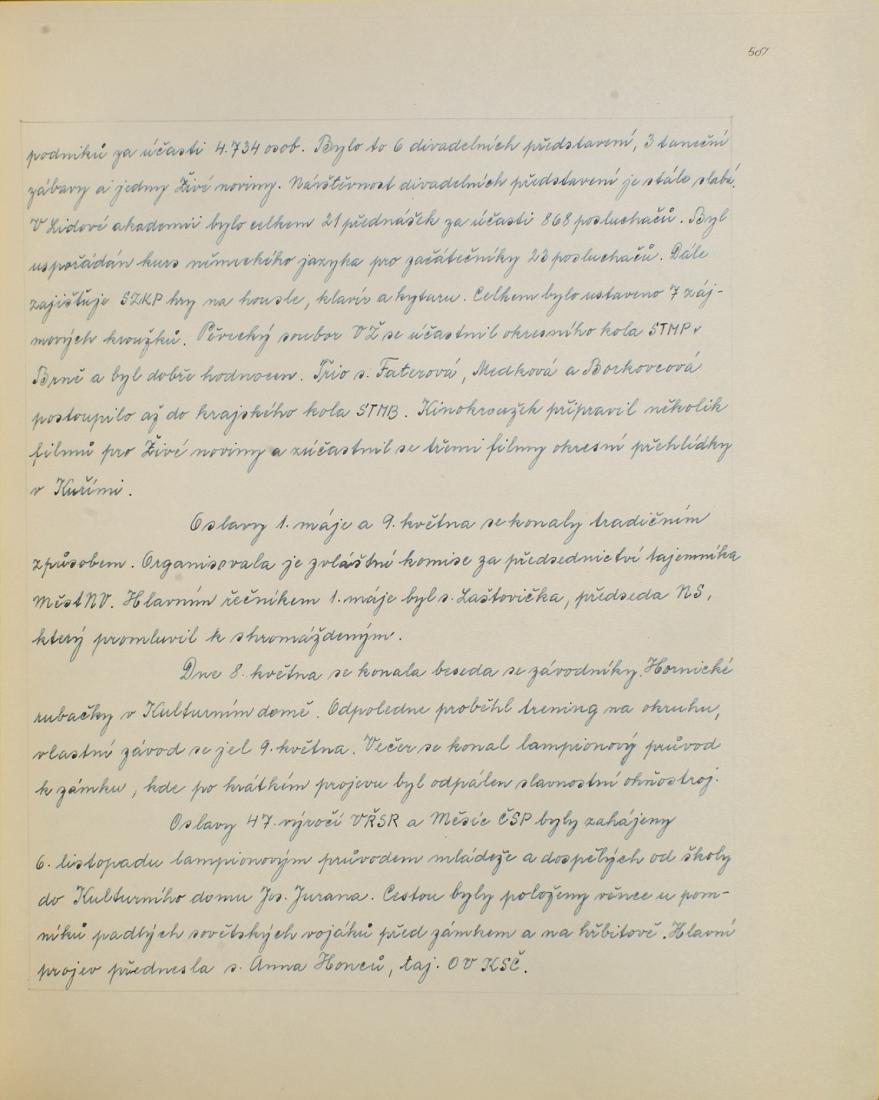 podniků za účasti 4.734 osob. Bylo to 6 divadelních představení, 3 taneční
zábavy a jedny Živé noviny. Návštěvnost divadelních představení je stále slabá.
V Lidové akademii bylo celkem 21 přednášek za účasti 868 posluchačů. Byl
uspořádán kurs německého jazyka pro začátečníky 23 posluchačů. Dále
zajišťuje SZKP hry na housle, klavír a kytaru. Celkem bylo ustaveno 7 záj-
mových kroužků. Pěvecký soubor VŽ se účastnil okresního kola STMP v
Brně a byl dobře hodnocen. Trio s. Faterová, Medková a Borkovcová
postoupilo až do krajského kola STMB. Kinokroužek připravil několik
filmů pro Živé noviny a zúčastnil se třemi filmy okresní přehlídky
v Kuřimi.
Oslavy 1. máje a 9. května se konaly tradičním
způsobem. Organisovala je zvláštní komise za předsednictví tajemníka
MěstNV. Hlavním řečníkem 1. máje byl s. Laštovička, předseda NS,
který promluvil k shromážděným.
Dne 8. května se konala beseda se závodníky Hornické
rubačky v Kulturním domě. Odpoledne proběhl trening na okruhu,
vlastní závod se jel 9. května. Večer se konal lampionový průvod
k zámku, kde po krátkém projevu byl odpálen slavnostní ohňostroj.
Oslavy 47. výročí VŘSR a Měsíc ČSP byly zahájeny
6. listopadu lampionovým průvodem mládeže a dospělých od školy
do Kulturního domu Jos. Jurana. Cestou byly položeny věnce u pom-
níků padlých sovětských vojáků před zámkem a na hřbitově. Hlavní
projev přednesla s. Anna Honců, taj. OV KSČ.